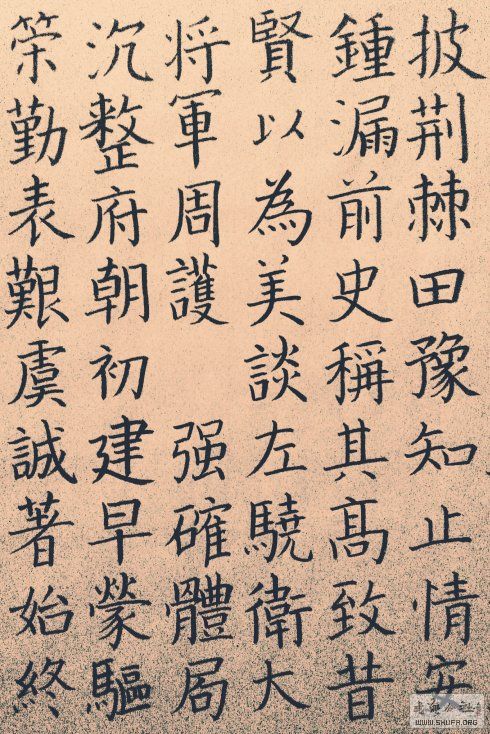 披荆棘田豫知止情安
鍾漏前史稱其髙致昔
賢以為美談左驍衛大
将軍周護 强確體局
沉整府朝初建早蒙驅
筞勤表艱虞誠著始終
WWW.SHUFA.ORG